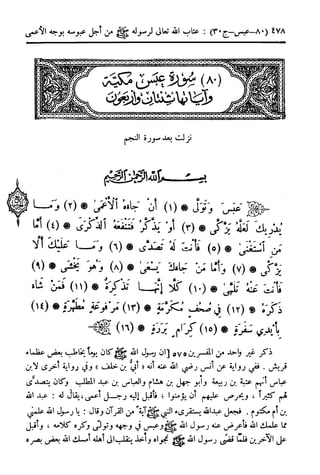 ٤٧٨ (٨٠-عبس-ج٣٠) : عتاب الله تعالى لرسوله ﷺ من أجل عبوسه بوجه الأعمى
(٨٠) سُورَةُ عَبَسَ مَكِّيَّة
وَآيَاتُهَا ثِنْتَانِ وَأَرْبَعُونَ
نزلت بعد سورة النجم
بِسْمِ اللَّهِ الرَّحْمَٰنِ الرَّحِيمِ
عَبَسَ وَتَوَلَّىٰ * (١) أَن جَاءَهُ الْأَعْمَىٰ * (٢) وَمَا
يُدْرِيكَ لَعَلَّهُ يَزَّكَّىٰ * (٣) أَوْ يَذَّكَّرُ فَتَنفَعَهُ الذِّكْرَىٰ * (٤) أَمَّا
مَنِ اسْتَغْنَىٰ * (٥) فَأَنتَ لَهُ تَصَدَّىٰ * (٦) وَمَا عَلَيْكَ أَلَّا
يَزَّكَّىٰ * (٧) وَأَمَّا مَن جَاءَكَ يَسْعَىٰ * (٨) وَهُوَ يَخْشَىٰ * (٩)
فَأَنتَ عَنْهُ تَلَهَّىٰ * (١٠) كَلَّا إِنَّهَا تَذْكِرَةٌ * (١١) فَمَن شَاءَ
ذَكَرَهُ * (١٢) فِي صُحُفٍ مُّكَرَّمَةٍ * (١٣) مَّرْفُوعَةٍ مُّطَهَّرَةٍ * (١٤)
بِأَيْدِي سَفَرَةٍ * (١٥) كِرَامٍ بَرَرَةٍ * (١٦)
ذكر غير واحد من المفسرين ٥٧٥ [ان رسول الله ﷺ كان يوماً يخاطب بعض عظماء
قريش . ففي رواية عن أنس رضي الله عنه أنه : أبيّ بن خلف ، وفي رواية أخرى لابن
عباس أنهم عتبة بن ربيعة وأبو جهل بن هشام والعباس بن عبد المطلب وكان يتصدّى
لهم كثيراً ، ويحرص عليهم أن يؤمنوا ؛ فأقبل إليه رجل أعمى ، يقال له : عبد الله
بن أم مكتوم . فجعل عبدالله يستقرىء النبي ﷺ آية من القرآن وقال : يا رسول الله علمني
مما علمك الله فأعرض عنه رسول الله ﷺ وعبس في وجهه وتولى وكره كلامه ، وأقبل
على الآخرين فلما قضى رسول الله ﷺ نجواه وأخذ ينقلب إلى أهله أمسك الله بعض بصره